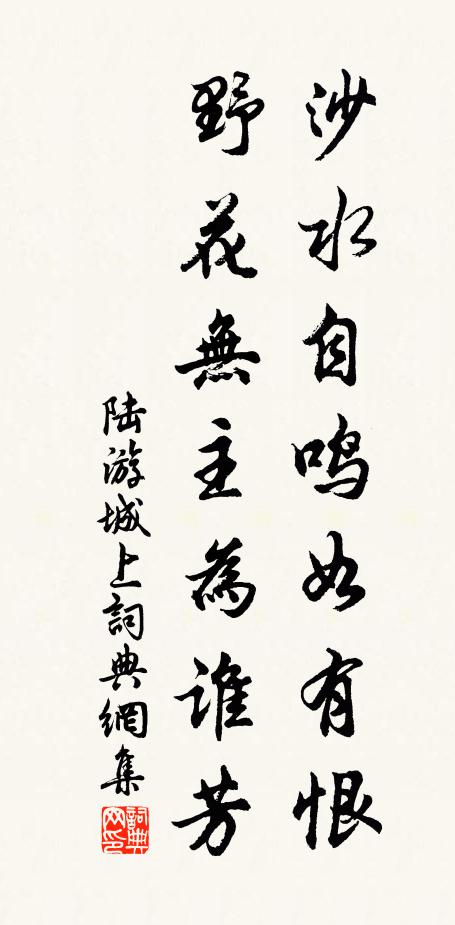 沙水自鸣如有恨
野花無主為誰芳
陆游城上詞典網集
詞典网印